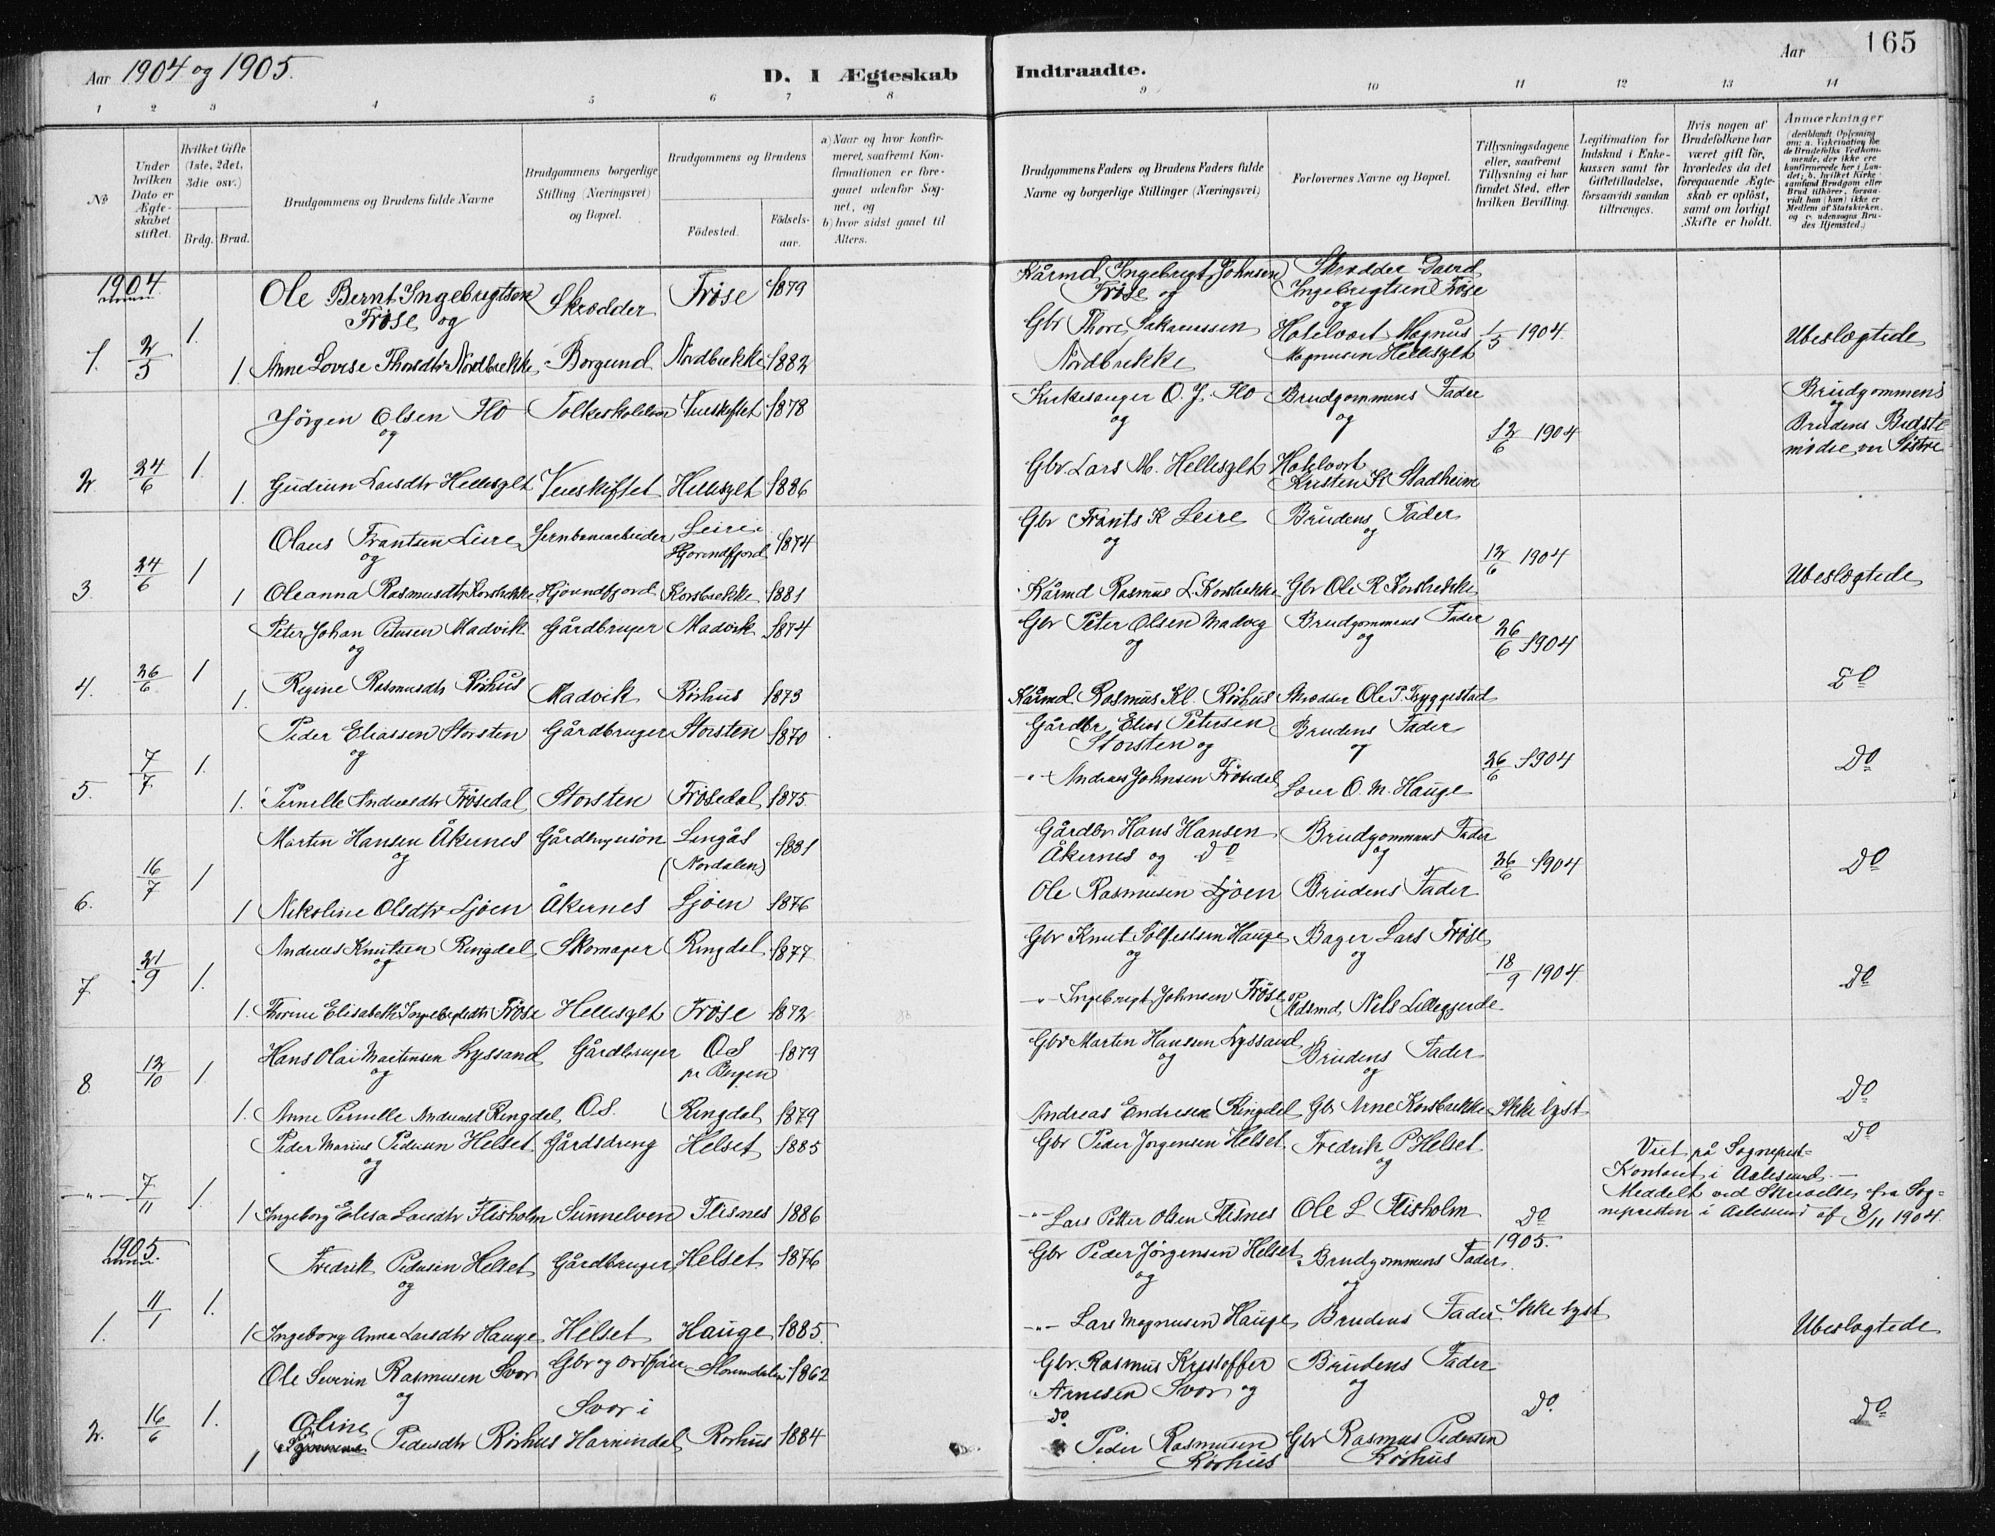 Aar 1904 og 1905.
D. I Ægteskab
Indtraadte.
Aar
165
1 2 3 4 5 6 7 8
9 10 11 12 13 14
No
Under hvilken Dato er Ægteskabet stiftet.
Hvilket Gifte (1ste, 2det, 3die osv.)
Brdg. Brud.
Brudgommens og Brudens fulde Navne
Brudgommens borgerlige Stilling (Næringsvei) og Bopæl.
Brudgommens og Brudens
Fødested.
Fødselsaar.
a) Naar og hvor konfirmeret, saafremt Konfirmationen er foregaaet udenfor Sognet, og
b) hvor sidst gaaet til Alters.
Brudgommens Faders og Brudens Faders fulde Navne og borgerlige Stillinger (Næringsvei)
Forlovernes Navne og Bopæl.
Tillysningsdagene eller, saafremt Tillysning ei har fundet Sted, efter hvilken Bevilling.
Legitimation for Indskud i Enkekassen samt for Giftetilladelse, forsaavidt saadan tiltrænges.
Hvis nogen af Brudefolkene har været gift før, hvorledes da det foregaaende Ægteskab er opløst, samt om lovligt Skifte er holdt.
Anmærkninger
1904
Ole Bernt Ingebrigtsen Skrædder Frøse 1879
Frøse og
1. 2/5 1. 1. Anne Lovise Thorsdtr Nordbrekke Borgund Nordbrekke 1882
Kårmd Ingebrigt Johnsen Skrædder David
Frøse og Ingebrigtsen Frøse
og
Gbr Thore Sakariassen Hotelvært Magnus 1/5 1904. Ubeslægtede
Nordbrekke Magnusen Hellesylt
Jørgen Olsen Flo Folkeskolelærer 1878
og
2 24/6 1. 1. Gudrun Larsdtr Hellesylt Hellesylt 1886
Kirkesanger O. J. Flo Brudgommens Fader Brudgommens
og og og
12/6 1904 Brudens Bedste
Gbr Lars M. Hellesylt Hotelvært mødre var Søstre
Kristen K Stadheim
Olaus Frantsen Leire Jernbanearbeider Leire i
og Hjørendfjord 1874
3 24/6 1 1 Oleanna Rasmusdtr Korsbrekke Hjørundfjord Korsbrekke 1881
Gbr Frants K Leire Brudens Fader
og og
12/6 1904
Kårmd Rasmus L. Korsbrekke Gbr Ole R Korsbrekke Ubeslægtede
Peter Johan Petersen Madvik Gårdbruger Madvik 1874
og
4. 26/6 1 1. Regine Rasmusdtr Rørhus Madvik Rørhus 1873
Gbr Peter Olsen Madvig Brudgommens Fader
og og 26/6 1904
Kårmd. Rasmus Kl. Rørhus Skrædder Ole P. Tryggestad Do
Peder Eliassen Storsten Gårdbruger Storsten 1870
og
5. 7/7 1. 1. Pernille Andreasdtr Frøsedal Storsten Frøsedal 1875
Gårdbr Elias Petersen Brudens Fader
Storsten og og
-"- Andreas Johnsen Frøsedal 26/6 1904 Do
Lærer O. M. Hauge
Martin Hansen Åkernes Gårdbrugersøn Lingås 1881
og (Nordalen)
6. 16/7 1 1 Nikoline Olsdtr Ljøen Åkernes Ljøen 1876
Gårdbr Hans Hansen Brudgommens Fader
Åkernes og Do og 26/6 1904 Do
Ole Rasmusen Ljøen Brudens Fader
Andreas Knutsen Ringdal Skomager Ringdal 1877
og
7 21/9 1. 1. Thorine Elisabeth Ingebrigtsdtr Frøse Hellesylt Frøse 1872
Gbr Knut Solfestsen Hauge Bager Lars Frøse
og og 18/9 1904 Do
-"- Ingebrigt Johnsen Frøse
Nils Lilleggjerde
Hans Olai Martinsen Lyssand Gårdbruger OS 1879
og pr Bergen
8 12/10 1 1. Anne Pernille Andreasd Ringdal OS. Ringdal 1879
Gbr Martin Hanssen Lyssand Brudens Fader
og og
Andreas Endresen Ringdal Gbr Arne Korsbrekke Ikke lyst Do
Peder Marius Pedersen Helset Gårdsdreng Helset 1885
og
-"- 7/11 1. 1 Ingeborg Elisa Larsdtr Flisholm Sunnelven Flisnes 1886
Gbr Peder Jørgensen Helset Fredrik P Helset Do
og
Viet på Sogneprest-
Kontoret i Aalesund.-
Meddelt ved Skrivelse fra Sog-
nepresten i Aalesund af 8/11 1904.
-"- Lars Petter Olsen Flisnes Ole L Flisholm Do
1905.
Fredrik Pedersen Helset Gårdbruger Helset 1876
og
1. 11/1 1. 1 Ingeborg Anna Larsdtr Hauge Helset Hauge 1885.
1905.
Gbr Peder Jørgensen Helset Brudgommens Fader
og og
-"- Lars Magnusen Hauge Brudens Fader Ikke lyst Ubeslægtede
Ole Severin Rasmusen Svor Gbr og 1862
og Svor i
2. 16/6 1. 1 Oline Pedersdtr Rørhus Hornindal Rørhus 1884
Gbr. Rasmus Kristoffer Brudens Fader
Arnesen Svor og og
do Do. Do
Peder Rasmusen Gbr Rasmus Pedersen
Rørhus Rørhus